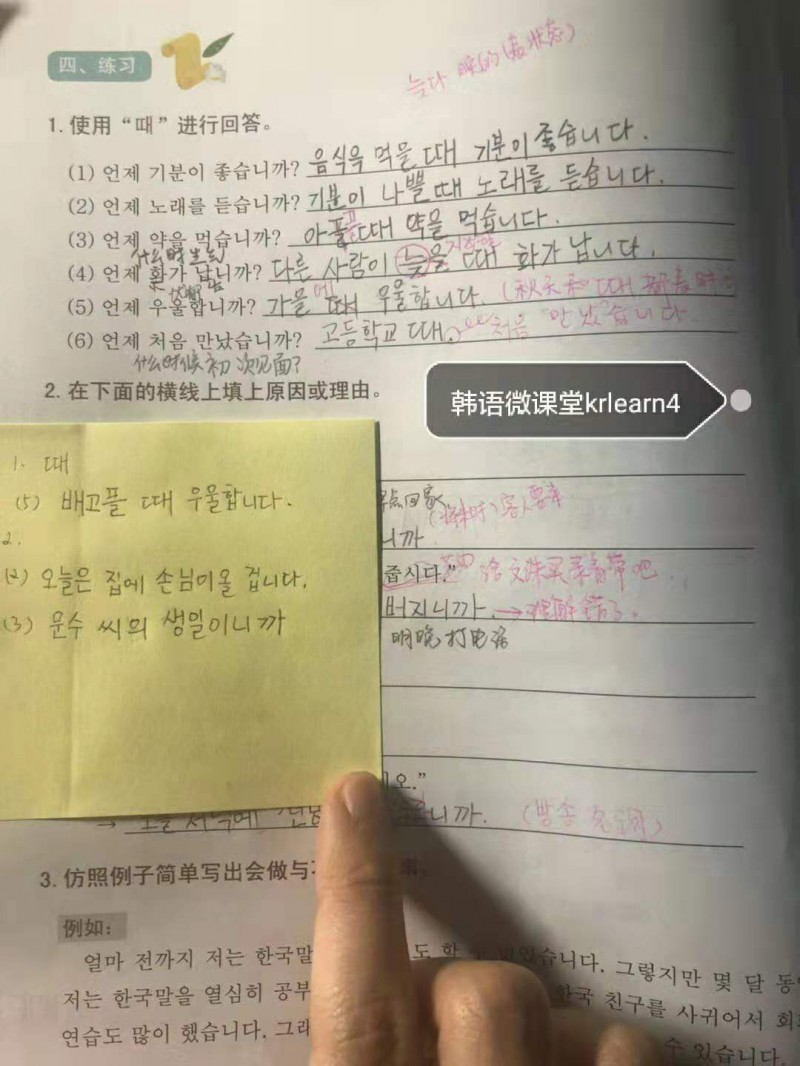 四、练习
늙다
1. 使用“때”进行回答。
(1) 언제 기분이 좋습니까? 음식욱 먹을 때 기분이 좋습니다.
(2) 언제 노래를 듣습니까? 기분이 나쁠 때 노래를 듣습니다.
(3) 언제 약을 먹습니까? 아플 때 약을 먹습니다.
什么时生气
(4) 언제 화가 납니까? 다른 사람이 늦을 때 화가 납니다.
(5) 언제 우울합니까? 가을에 때 우울합니다.
(6) 언제 처음 만났습니까? 고등학교 때. 처음 만났습니다
什么时候初次见面?
2. 在下面的横线上填上原因或理由。
韩语微课堂krlearn4
1. 때
(5) 배고플 때 우울합니다.
2.
(2) 오늘은 집에 손님이올 겁니다.
(3) 문수 씨의 생일이니까
早点回家
니까
줍시다.”
버지니까. → 理解错了。
明晚打电话
오.”
→ 오늘 저녁에 니까.
3. 仿照例子简单写出会做与
例如:
얼마 전까지 저는 한국말 도 할 수 없었습니다. 그렇지만 몇 달 동
저는 한국말을 열심히 공부 한국 친구를 사귀어서 회
연습도 많이 했습니다. 그래 수 있습니다.